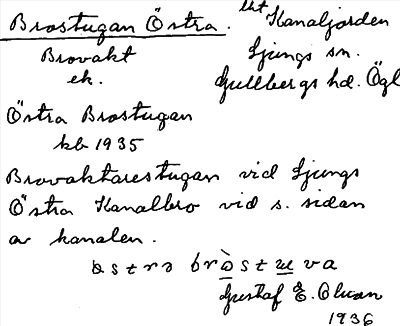 Brostugan Östra. litt Kanaljorden
Brovakt Ljungs sn.
ek. Gullbergs hd. Ögl
Östra Brostugan
kb 1935
Brovaktarestugan vid Ljungs
Östra Kanalbro vid s. sidan
av kanalen.
ɷstrə bròstuva
Gustaf E. Olsson
1936